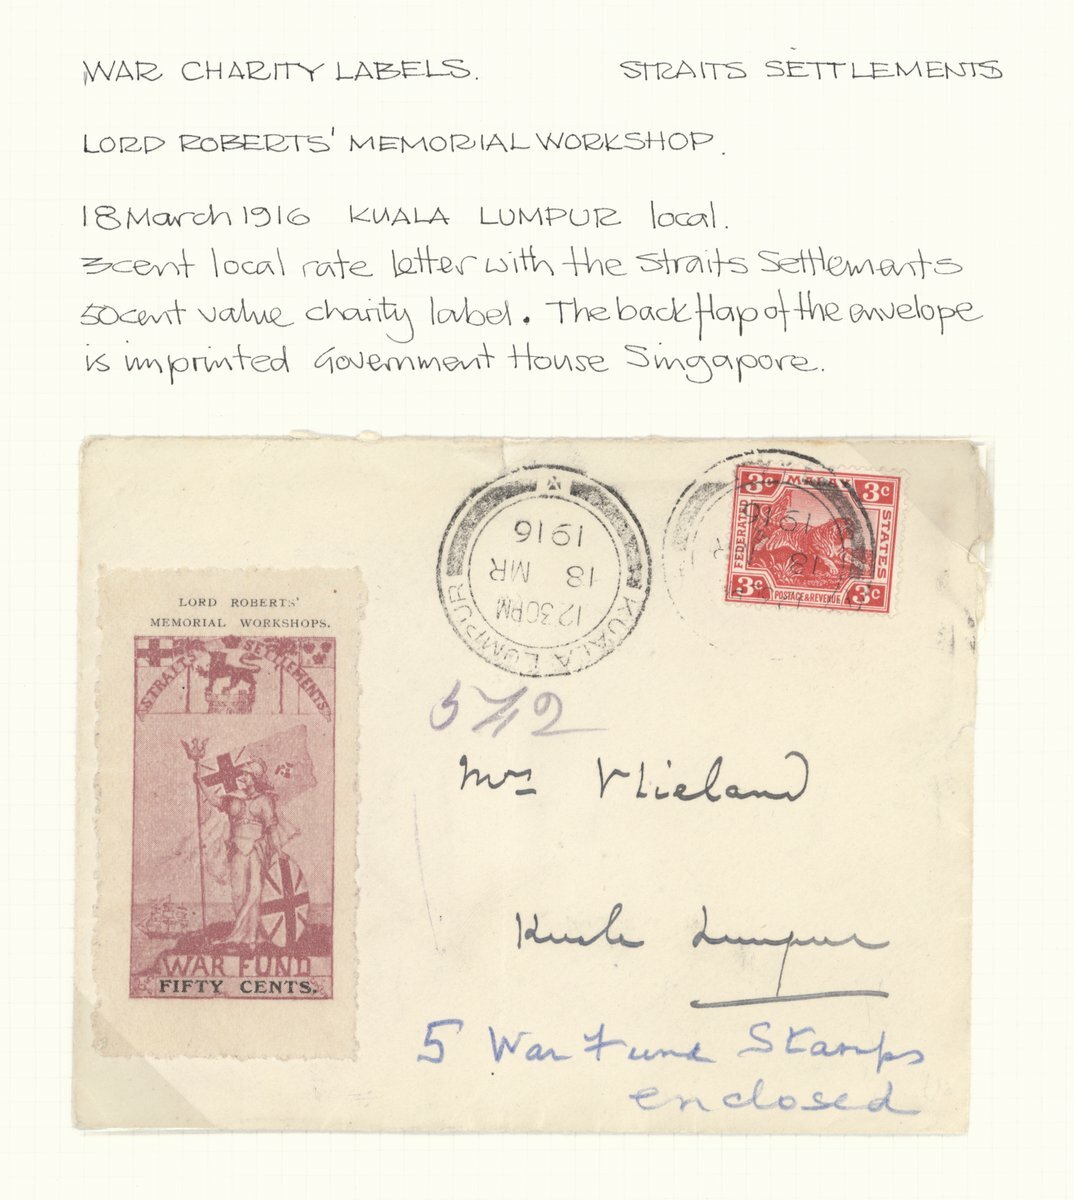 WAR CHARITY LABELS. STRAITS SETTLEMENTS
LORD ROBERTS' MEMORIAL WORKSHOP.
18 March 1916 KUALA LUMPUR local.
3cent local rate letter with the Straits Settlements
50cent value charity label. The back flap of the envelope
is imprinted Government House Singapore.
KUALA LUMPUR
1230PM
18 MR
1916
18
1916
3c MALAY 3c
FEDERATED
STATES
3c POSTAGE & REVENUE 3c
LORD ROBERTS'
MEMORIAL WORKSHOPS.
STRAITS SETTLEMENTS
WAR FUND
FIFTY CENTS.
542
Mrs Vlieland
Kuala Lumpur
5 War Fund Stamps
enclosed